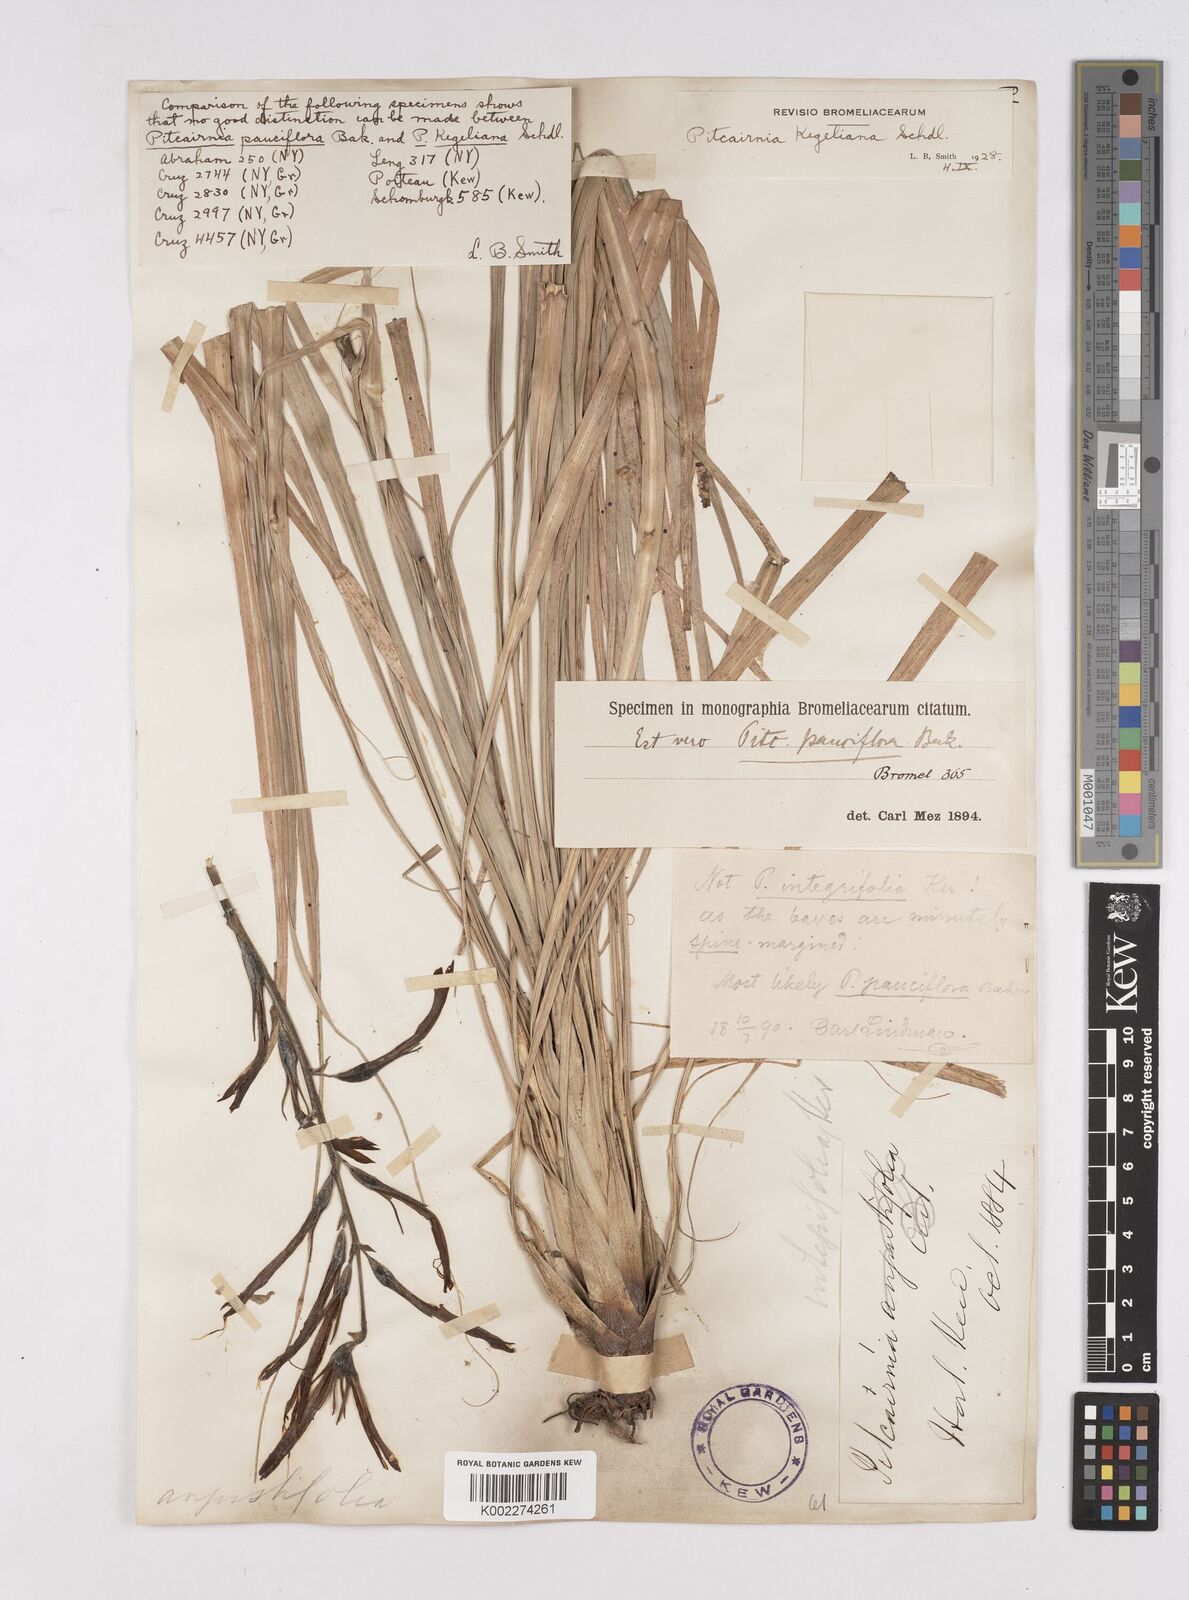 Comparison of the following specimens shows
that no good distinction can be made between
Pitcairnia pauciflora Bak. and P. Kegeliana Schdl.
Abraham 250 (NY)
Cruz 2744 (NY, Gr)
Cruz 2830 (NY, Gr)
Cruz 2997 (NY, Gr)
Cruz 4457 (NY, Gr)
Leng 317 (NY)
Poiteau (Kew)
Schomburgk 585 (Kew).
L. B. Smith
REVISIO BROMELIACEARUM
Pitcairnia Kegeliana Schdl.
L. B. Smith 1928.
4.IX.
Specimen in monographia Bromeliacearum citatum.
Est vero Pitc. pauciflora Bak.
Bromel 365
det. Carl Mez 1894.
Not P. integrifolia Ker!
as the leaves are minutely
spine-margined!
Most likely P. pauciflora Baker
18 10/7 90.
integrifolia, Ker
Pitcairnia angustifolia
Hort. Kew.
Oct. 1884
angustifolia
ROYAL GARDENS
KEW
61
ROYAL BOTANIC GARDENS KEW
K002274261
inches
centimetres
Density
Don Williams
M001047
Kew
Royal Botanic Gardens
copyright reserved
0 1 2 3 4 5 6 7 8 9 10
cm